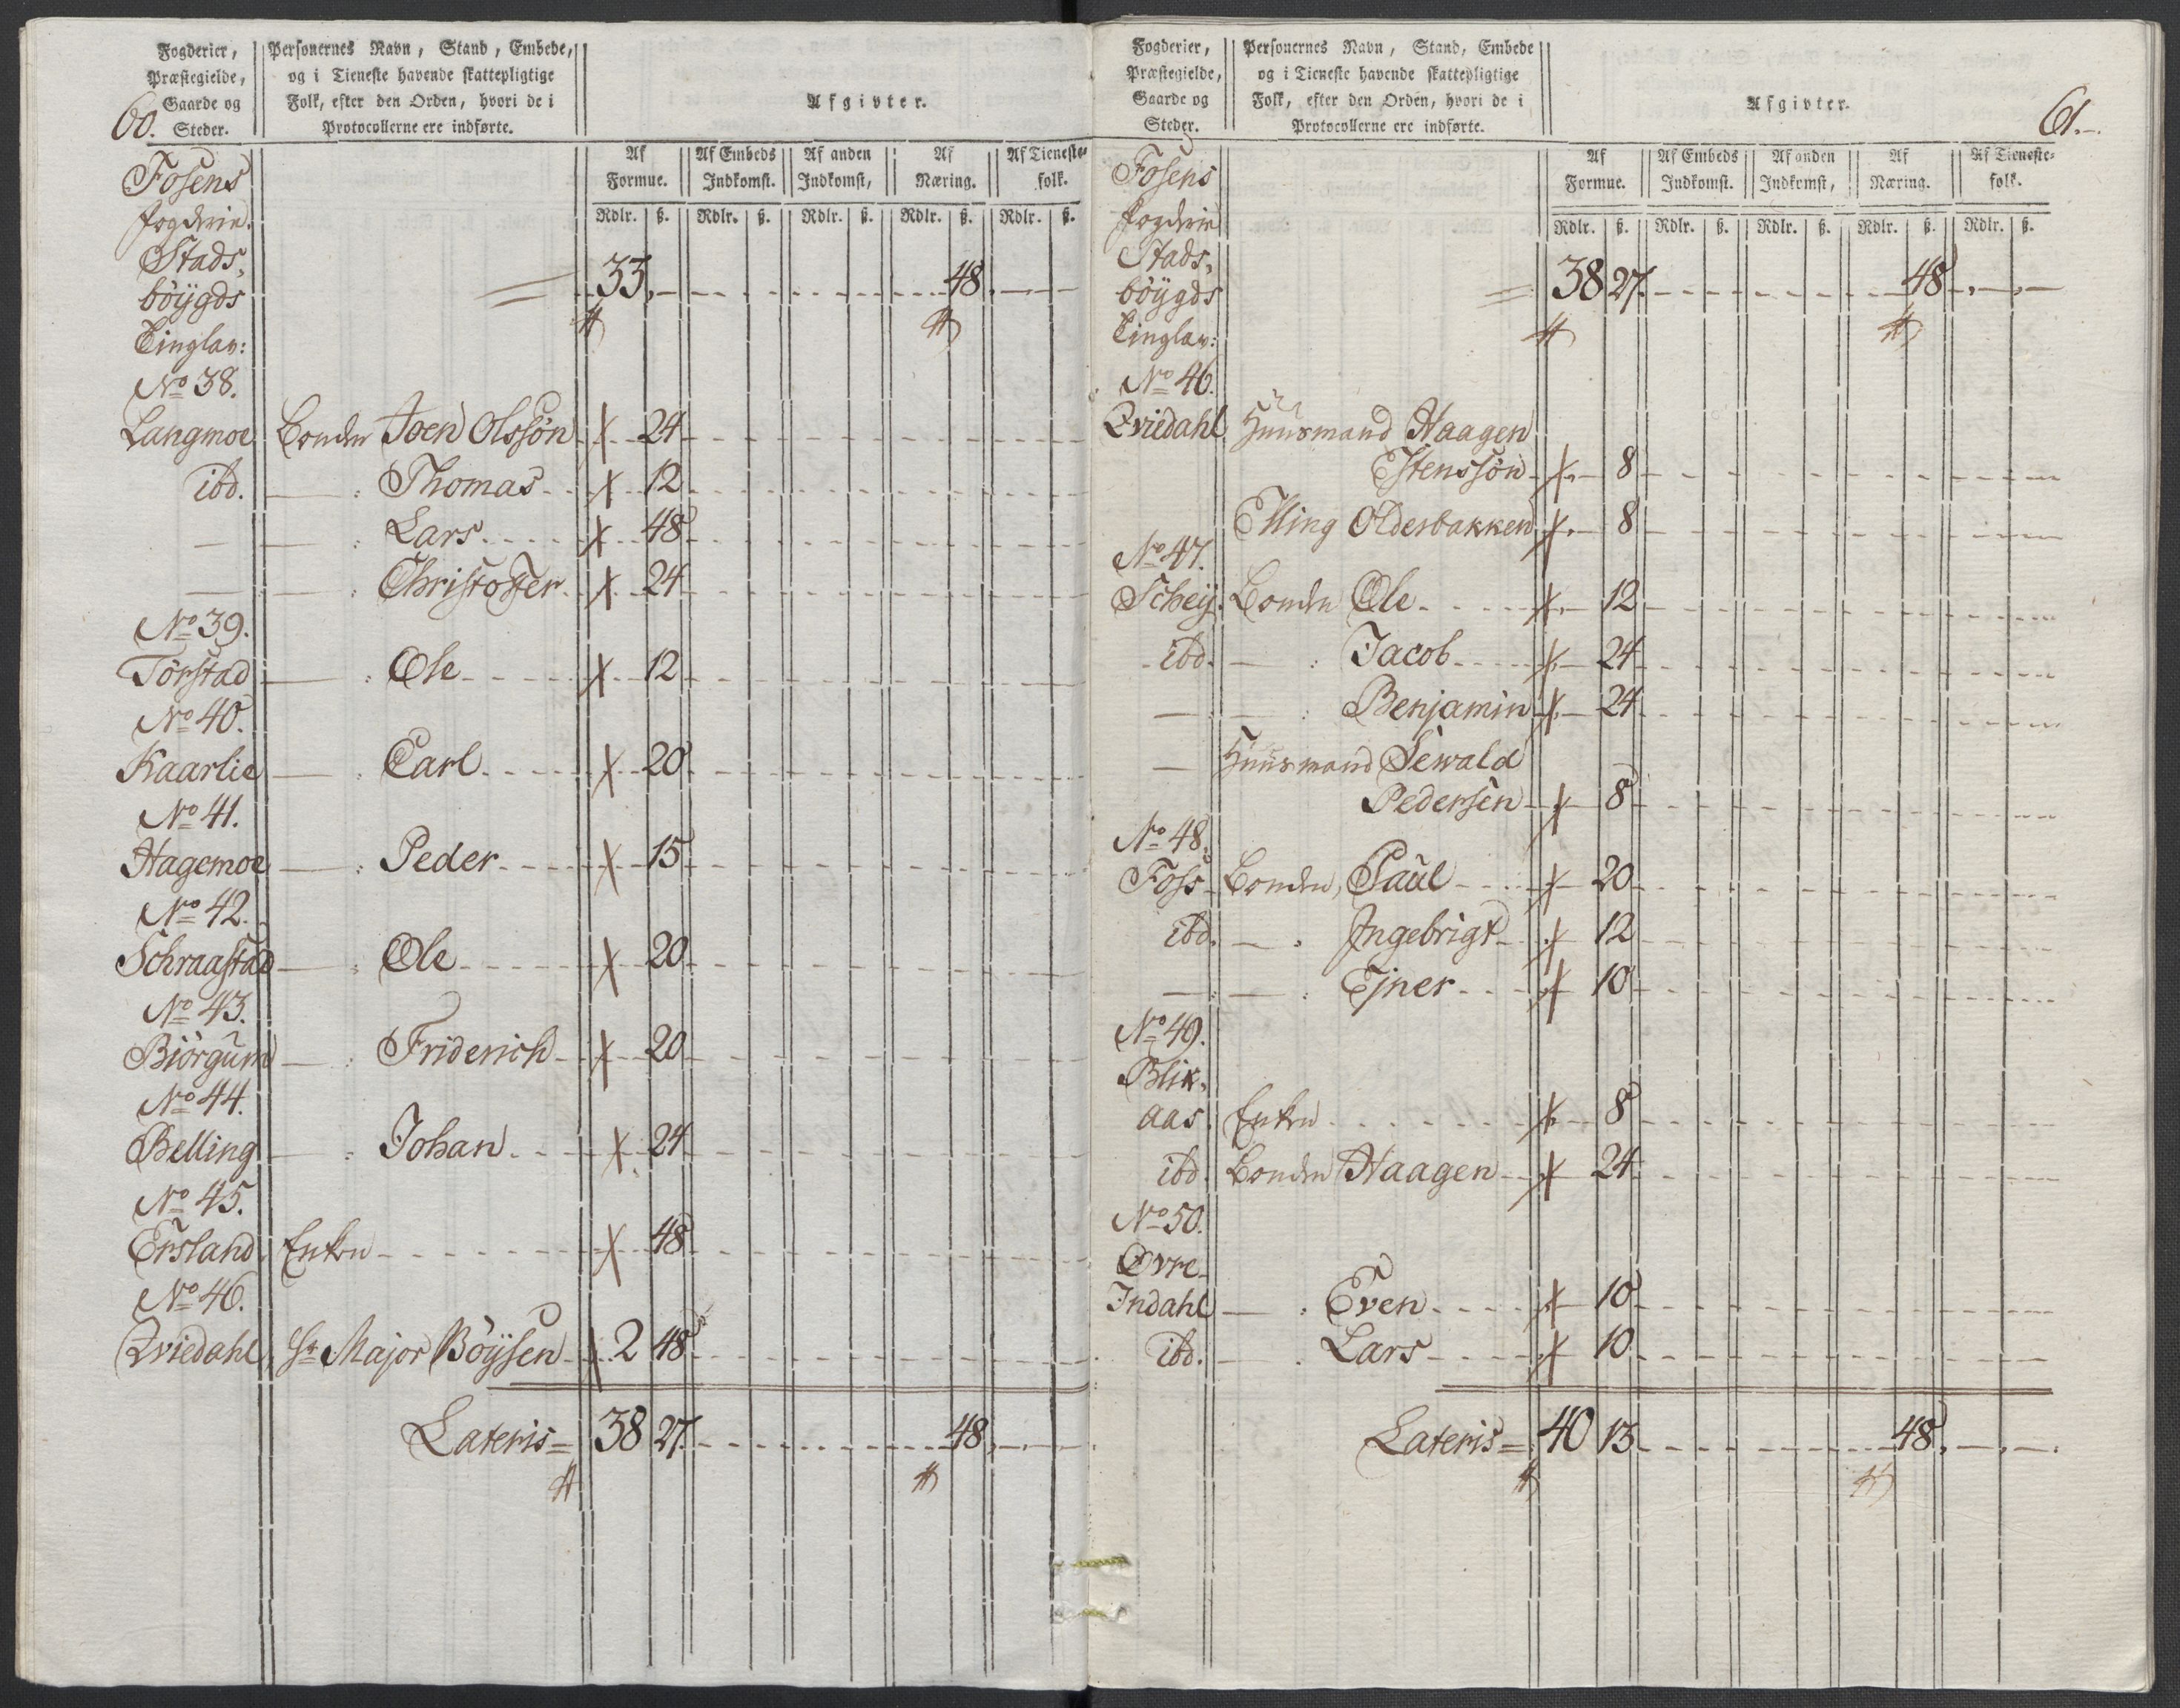 60.
Fogderier, Præstegielde, Gaarde og Steder.
Personernes Navn, Stand, Embede, og i Tieneste havende skattepligtige Folk, efter den Orden, hvori de i Protocollerne ere indførte.
Afgivter.
Af Formue. Af Embeds Indkomst. Af anden Indkomst, Af Næring. Af Tieneste-folk.
Rdlr. ß. Rdlr. ß. Rdlr. ß. Rdlr. ß. Rdlr. ß.
Fosens
fogderie.
Stads,
böÿgds 33. 48.
Tinglav:
No 38.
Langmoe Bonden Joen Olssön 24
ibd. — : Thomas 12
— — : Lars 48
— — : Christoffer 24
No 39.
Törstad — : Ole 12
No 40.
Kaarlie — : Carl 20
No 41.
Hagemoe — : Peder 15
No 42.
Schraastad — : Ole 20
No 43.
Biörgum — : Friderich 20
No 44.
Belling — : Johan 24
No 45.
Ersland Enken 48
No 46.
Qviedahl Hr Major Böÿsen 2 48
Lateris = 38 27. 48.
61.
Fogderier, Præstegielde, Gaarde og Steder.
Personernes Navn, Stand, Embede og i Tieneste havende skattepligtige Folk, efter den Orden, hvori de i Protocollerne ere indførte.
Afgivter.
Af Formue. Af Embeds Indkomst. Af anden Indkomst, Af Næring. Af Tieneste-folk.
Rdlr. ß. Rdlr. ß. Rdlr. ß. Rdlr. ß. Rdlr. ß.
Fosens
fogderie
Stads,
böÿgds = 38 27. 48
Tinglav:
No 46.
Qviedahl Huusmand Haagen
Estenssön 8
Elling Olderbakken 8
No 47.
Schey. Bonden Ole 12
ibd. — : Jacob 24
— — : Benjamin 24
— Huusmand Sewald
Pedersen 8
No 48.
Foss Bonden, Paul 20
ibd. — . Ingebrigt 12
— — : Ejner 10
No 49.
Blik,
aas Enken 8
ibd. Bonden Haagen 24
No 50.
Øvre
Indahl — : Even 10
ibd. — . Lars 10
Lateris = 40 13 48.